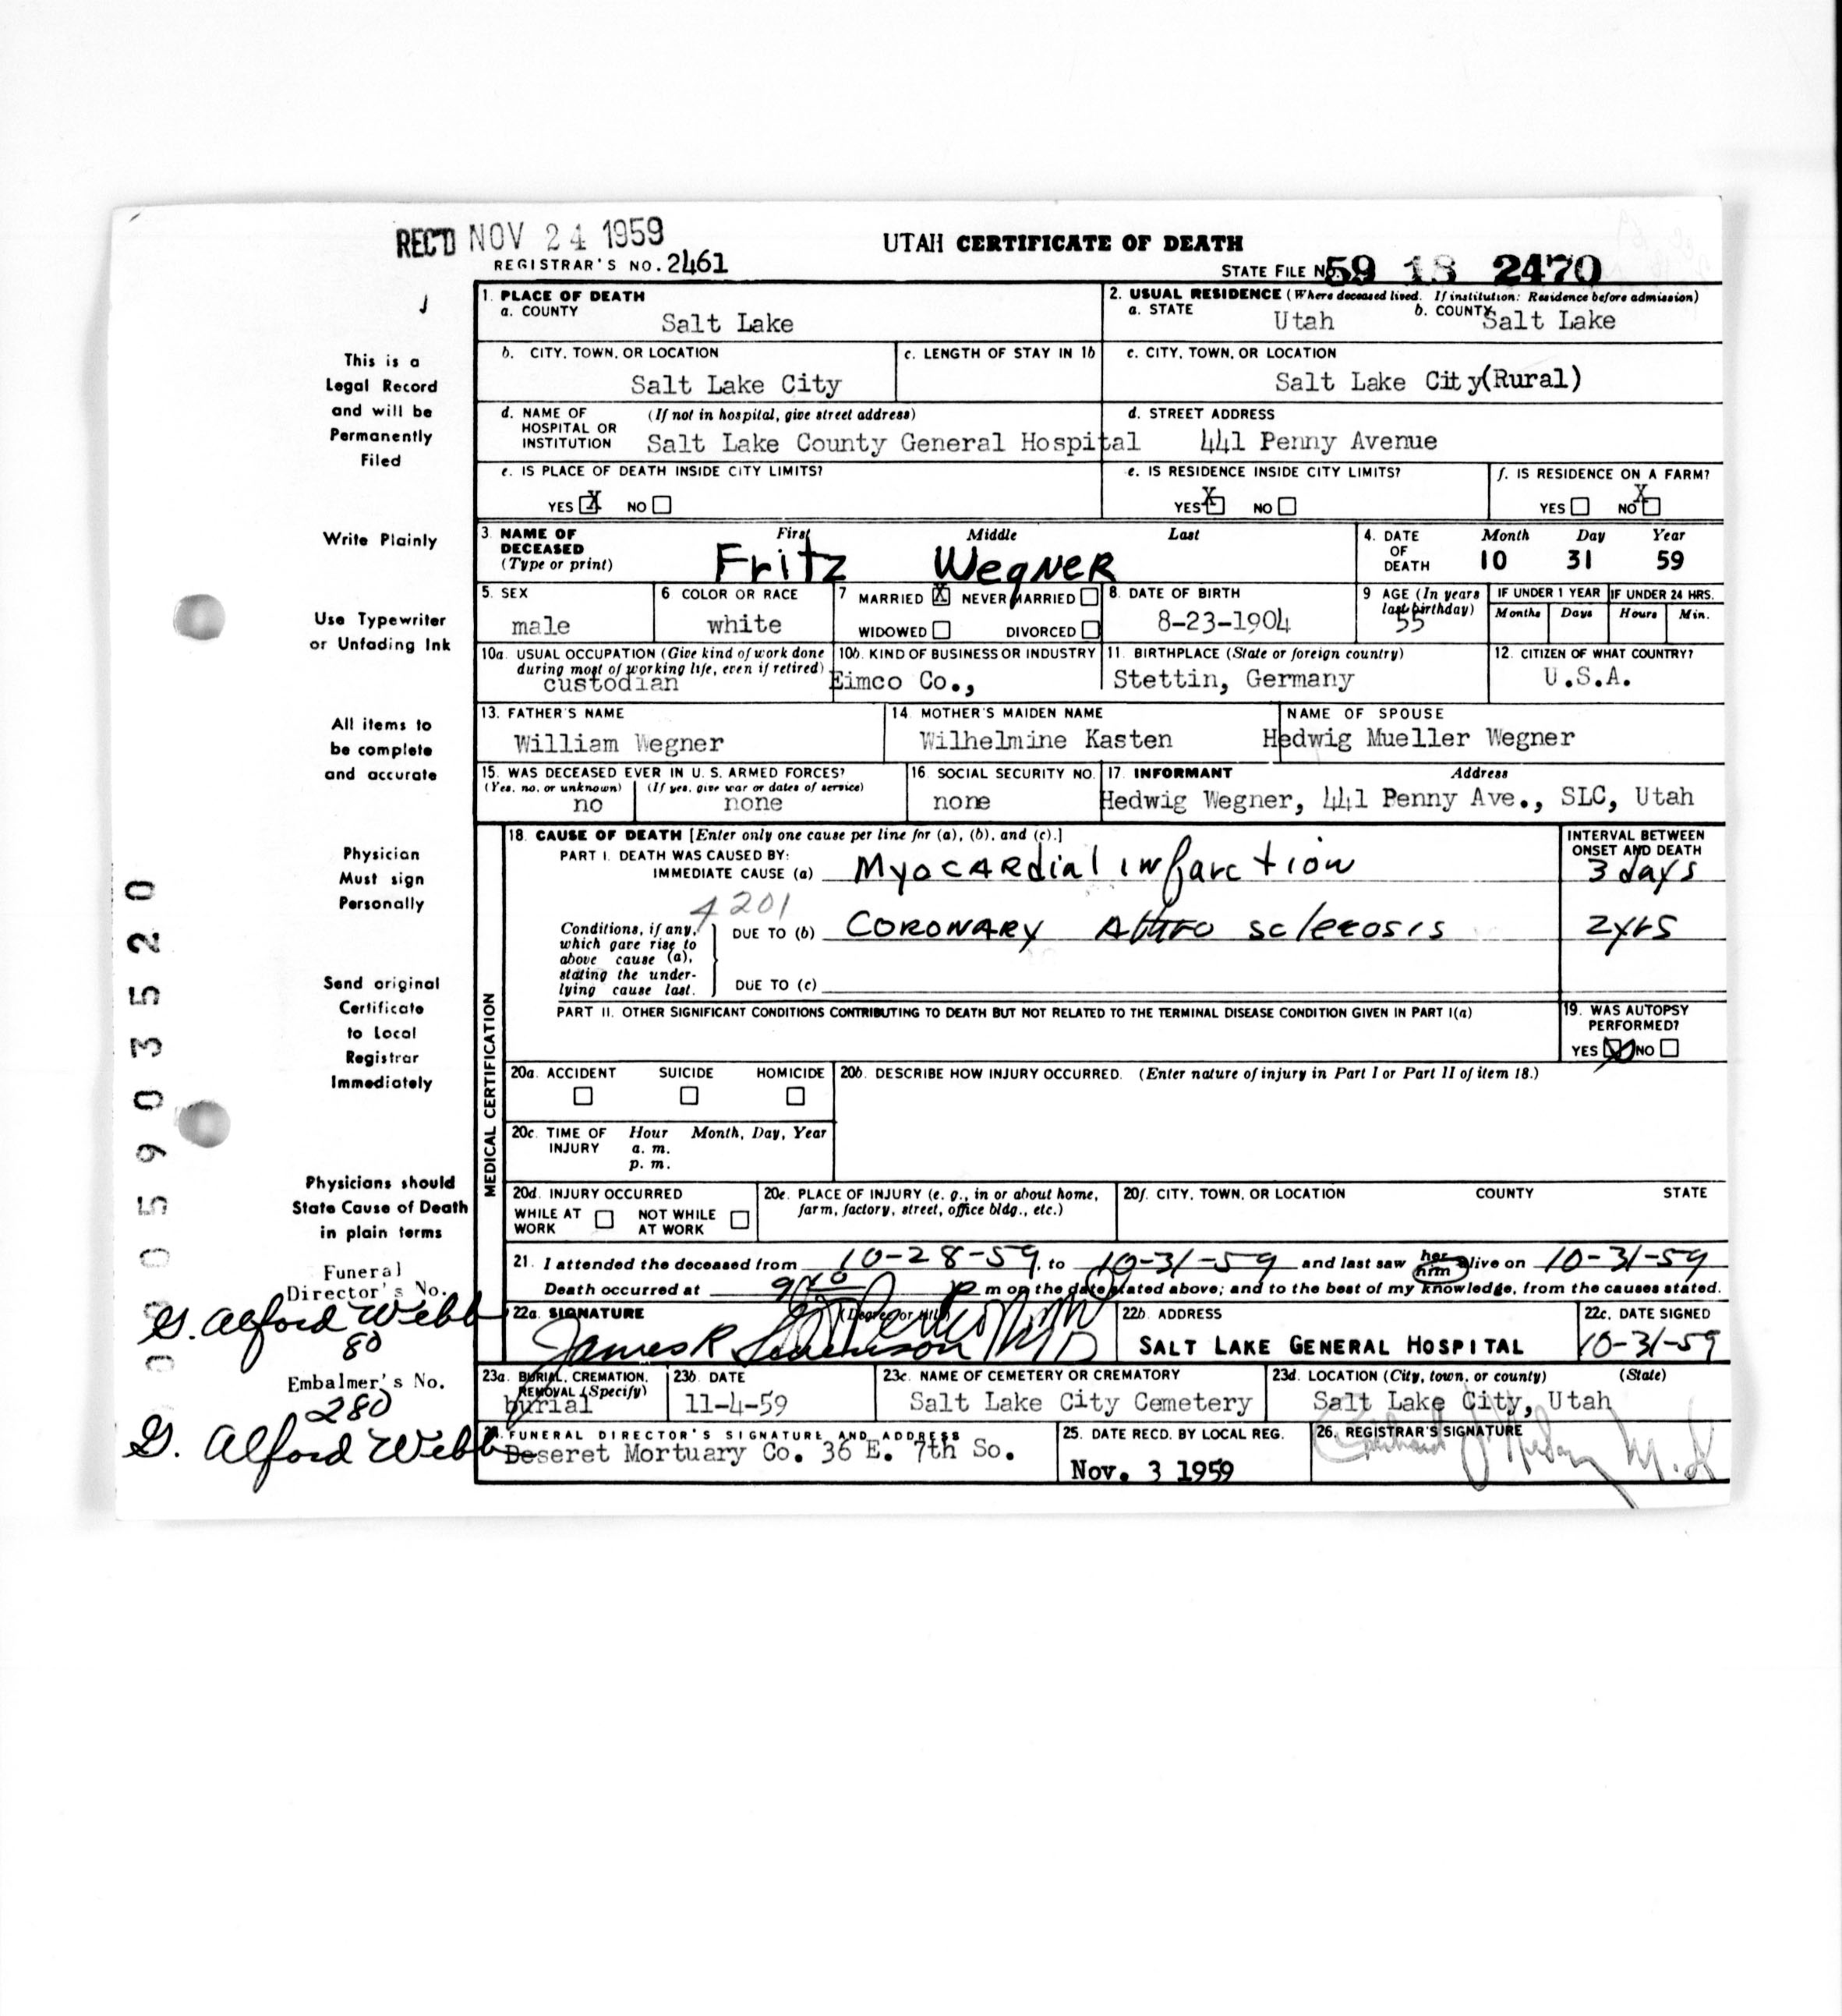 REC'D NOV 24 1959
UTAH CERTIFICATE OF DEATH
REGISTRAR'S NO. 2461
STATE FILE NO. 59 18 2470
1. PLACE OF DEATH
a. COUNTY
Salt Lake
2. USUAL RESIDENCE (Where deceased lived. If institution: Residence before admission)
a. STATE
Utah
b. COUNTY
Salt Lake
b. CITY, TOWN, OR LOCATION
Salt Lake City
c. LENGTH OF STAY IN 1b
c. CITY, TOWN, OR LOCATION
Salt Lake City (Rural)
d. NAME OF HOSPITAL OR INSTITUTION
(If not in hospital, give street address)
Salt Lake County General Hospital
d. STREET ADDRESS
441 Penny Avenue
e. IS PLACE OF DEATH INSIDE CITY LIMITS?
YES X NO
e. IS RESIDENCE INSIDE CITY LIMITS?
YES X NO
f. IS RESIDENCE ON A FARM?
YES NO X
3. NAME OF DECEASED (Type or print)
First Middle Last
Fritz Wegner
4. DATE OF DEATH
Month Day Year
10 31 59
5. SEX
male
6 COLOR OR RACE
white
7 MARRIED X NEVER MARRIED
WIDOWED DIVORCED
8. DATE OF BIRTH
8-23-1904
9 AGE (In years last birthday)
55
IF UNDER 1 YEAR
Months Days
IF UNDER 24 HRS.
Hours Min.
10a. USUAL OCCUPATION (Give kind of work done during most of working life, even if retired)
custodian
10b. KIND OF BUSINESS OR INDUSTRY
Eimco Co.,
11. BIRTHPLACE (State or foreign country)
Stettin, Germany
12. CITIZEN OF WHAT COUNTRY?
U.S.A.
13. FATHER'S NAME
William Wegner
14. MOTHER'S MAIDEN NAME
Wilhelmine Kasten
NAME OF SPOUSE
Hedwig Mueller Wegner
15. WAS DECEASED EVER IN U. S. ARMED FORCES?
(Yes, no, or unknown) (If yes, give war or dates of service)
no none
16. SOCIAL SECURITY NO.
none
17. INFORMANT Address
Hedwig Wegner, 441 Penny Ave., SLC, Utah
MEDICAL CERTIFICATION
18. CAUSE OF DEATH [Enter only one cause per line for (a), (b), and (c).]
INTERVAL BETWEEN ONSET AND DEATH
PART I. DEATH WAS CAUSED BY:
IMMEDIATE CAUSE (a) Myocardial infarction 3 days
4201
Conditions, if any, which gave rise to above cause (a), stating the underlying cause last.
DUE TO (b) Coronary sclerosis 2 yrs
DUE TO (c)
PART II. OTHER SIGNIFICANT CONDITIONS CONTRIBUTING TO DEATH BUT NOT RELATED TO THE TERMINAL DISEASE CONDITION GIVEN IN PART I(a)
19. WAS AUTOPSY PERFORMED?
YES X NO
20a. ACCIDENT SUICIDE HOMICIDE
20b. DESCRIBE HOW INJURY OCCURRED. (Enter nature of injury in Part I or Part II of item 18.)
20c. TIME OF INJURY
Hour Month, Day, Year
a. m.
p. m.
20d. INJURY OCCURRED
WHILE AT WORK NOT WHILE AT WORK
20e. PLACE OF INJURY (e. g., in or about home, farm, factory, street, office bldg., etc.)
20f. CITY, TOWN, OR LOCATION COUNTY STATE
21. I attended the deceased from 10-28-59, to 10-31-59 and last saw her him alive on 10-31-59
Death occurred at p m on the date stated above; and to the best of my knowledge, from the causes stated.
22a. SIGNATURE (Degree or title)
James R MD
22b. ADDRESS
SALT LAKE GENERAL HOSPITAL
22c. DATE SIGNED
10-31-59
23a. BURIAL, CREMATION, REMOVAL (Specify)
burial
23b. DATE
11-4-59
23c. NAME OF CEMETERY OR CREMATORY
Salt Lake City Cemetery
23d. LOCATION (City, town, or county) (State)
Salt Lake City, Utah
24. FUNERAL DIRECTOR'S SIGNATURE AND ADDRESS
Deseret Mortuary Co. 36 E. 7th So.
25. DATE RECD. BY LOCAL REG.
Nov. 3 1959
26. REGISTRAR'S SIGNATURE
M.D
This is a
Legal Record
and will be
Permanently
Filed
Write Plainly
Use Typewriter
or Unfading Ink
All items to
be complete
and accurate
Physician
Must sign
Personally
Send original
Certificate
to Local
Registrar
Immediately
Physicians should
State Cause of Death
in plain terms
Funeral
Director's No.
G. Alford Webb
80
Embalmer's No.
280
G. Alford Webb
005903520